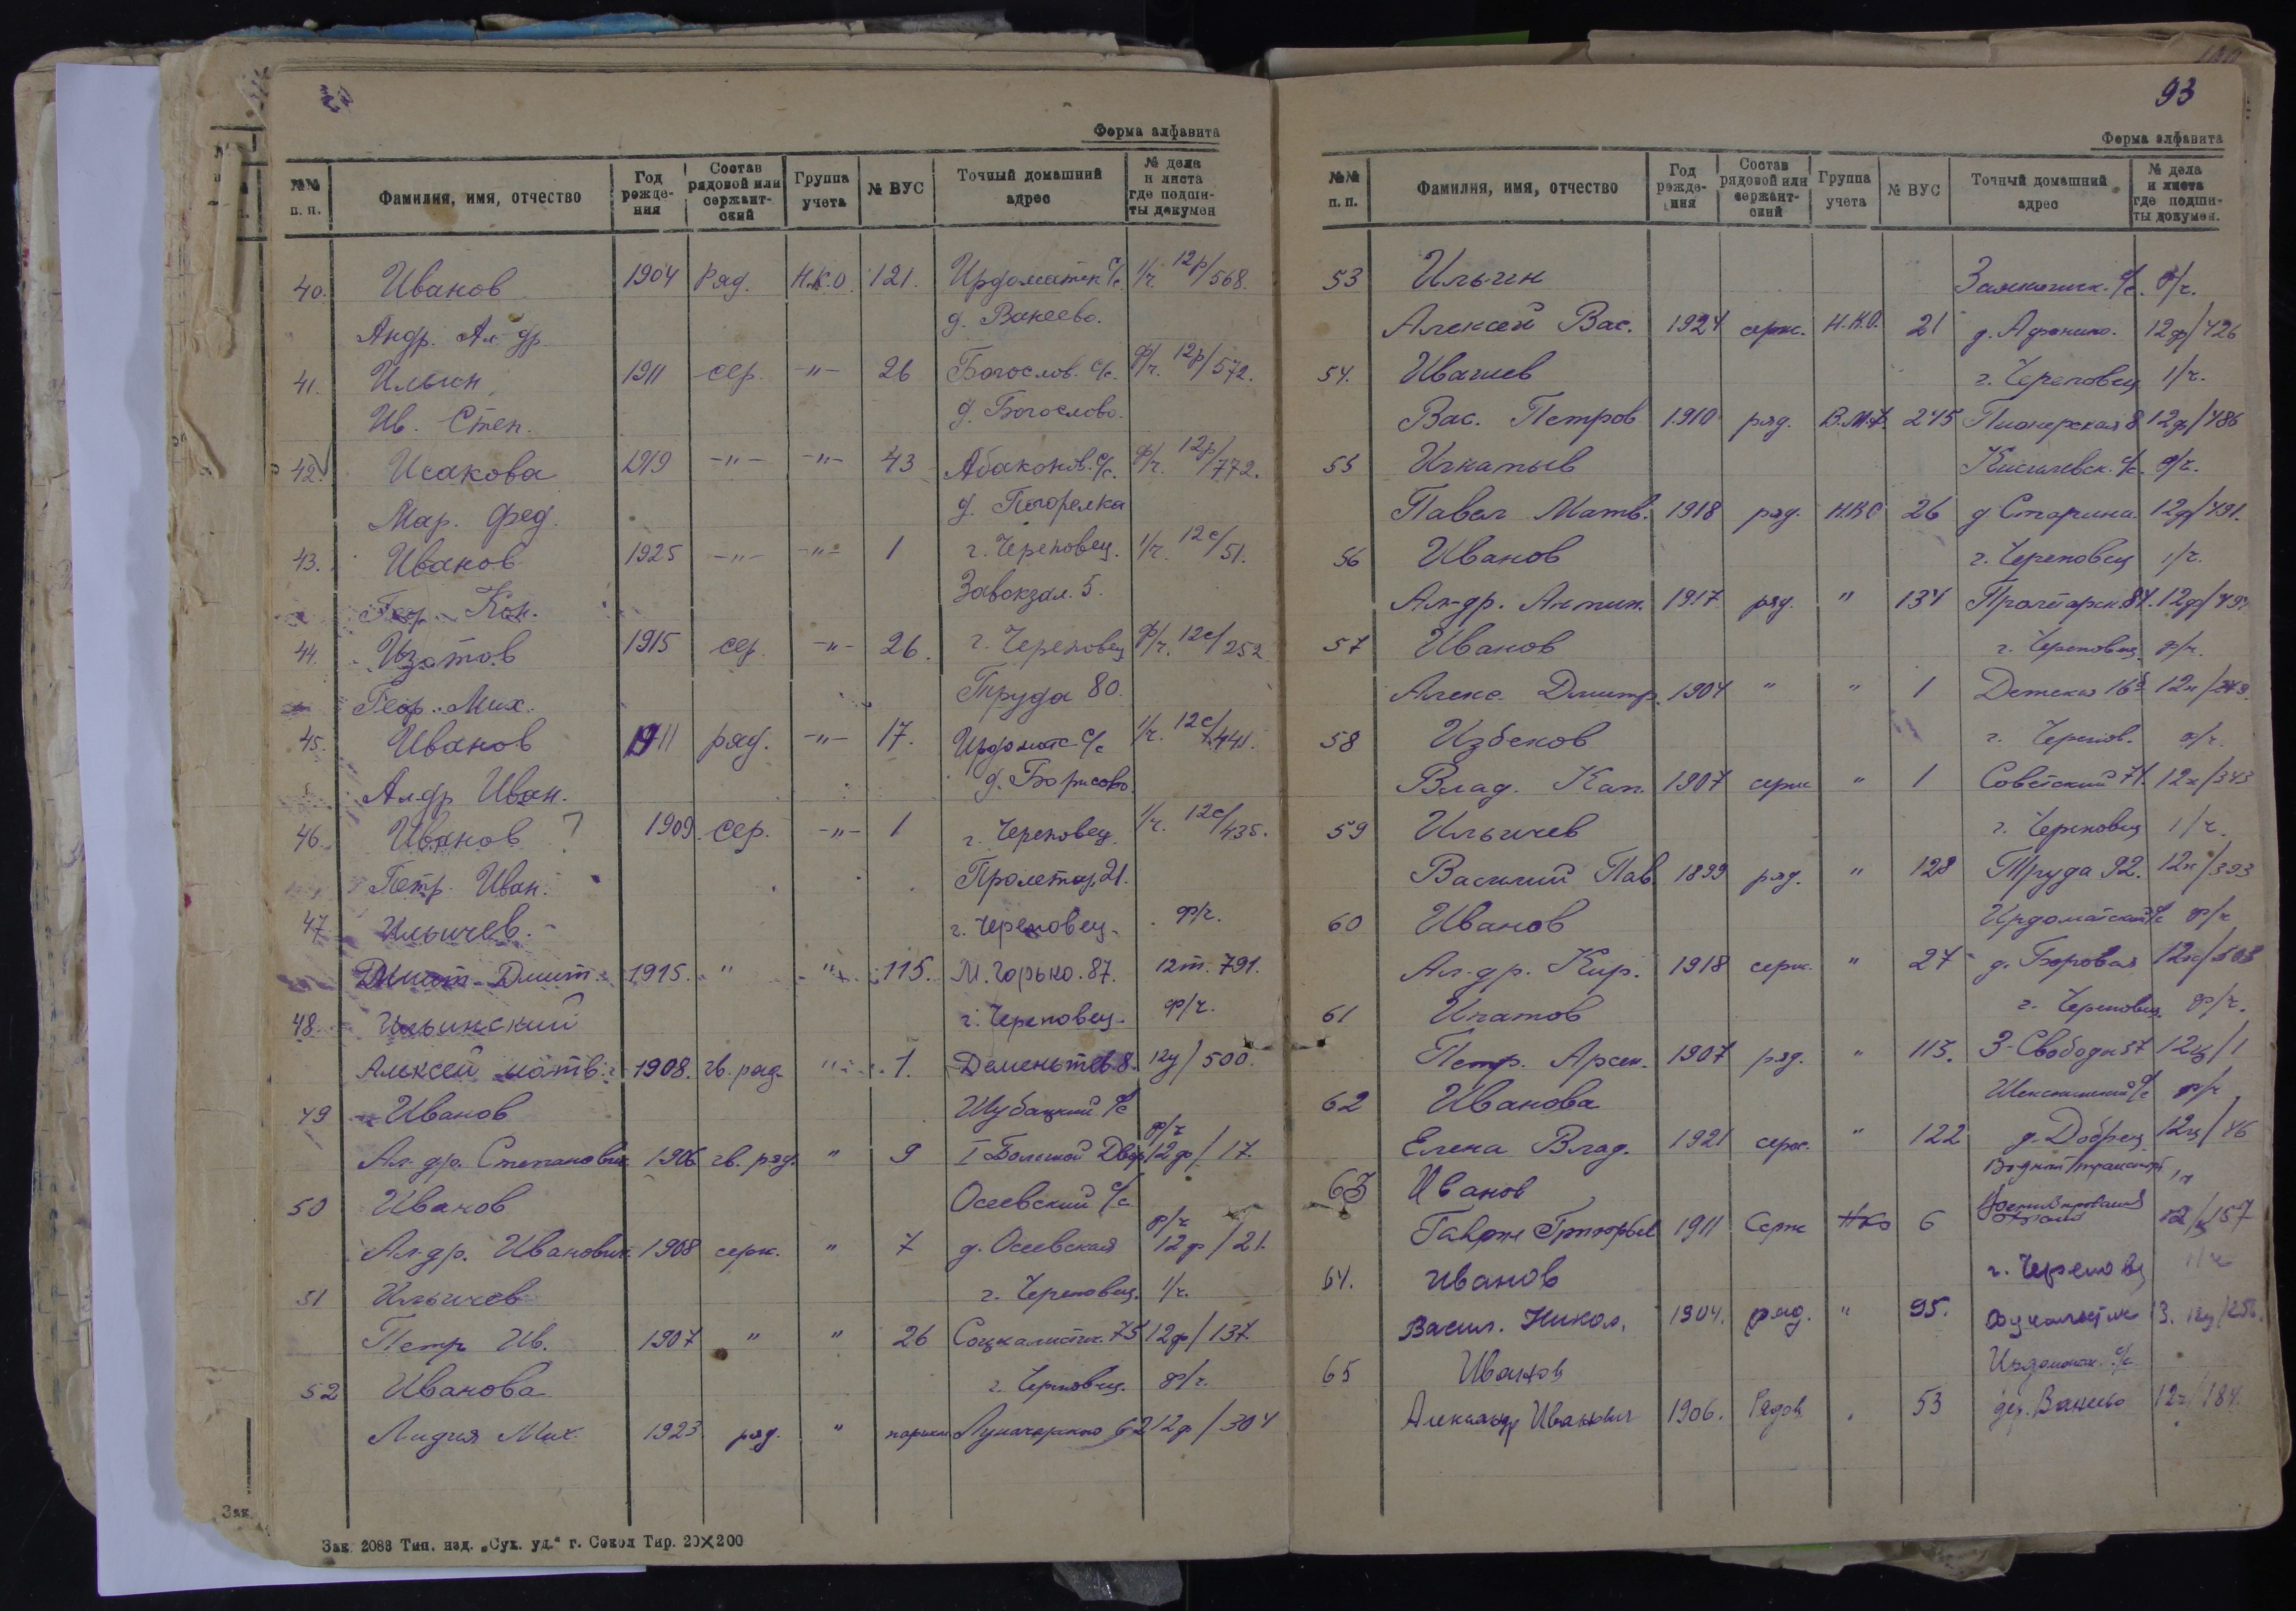 Форма алфавита
№№ п. п. Фамилия, имя, отчество Год рождения Состав рядовой или сержантский Группа учета № ВУС Точный домашний адрес № дела и листа где подши-ты докумен
40. Иванов 1904 Ряд. Н.К.О. 121. Ирдоматск с/с. 1/ч. 12р/568.
Андр. Ал-др. д. Ванеево.
41. Ильин 1911 сер. -"- 26 Богослов. с/с. ф/ч. 12р/572.
Ив. Степ. д. Богослово.
42. Исакова 1919 -"- -"- 43 Абаканов. с/с. ф/ч. 12р/772.
Мар. Фед. д. Погорелка
43. Иванов 1925 -"- -"- 1 г. Череповец. 1/ч. 12с/51.
Кон. Завокзал. 5.
44. Изотов 1915 сер. -"- 26. г. Череповец ф/ч. 12с/252
Геор. Мих. Труда 80.
45. Иванов 1911 ряд. -"- 17. Ирдоматс с/с 1/ч. 12с/441.
Алдр Иван. д. Борисово.
46. Иванов ? 1909 сер. -"- 1 г. Череповец. 1/ч. 12с/435.
Петр. Иван. Пролетар. 21.
47 Ильичев. г. Череповец. ф/ч.
Дмит. Дмит. 1915. " " 115. М. Горько. 87. 12т. 791.
48. Ильинский г. Череповец. ф/ч.
Алексей матв. 1908. гв. ряд. " 1. Деменьтев. 8. 12у/500.
49 Иванов Шубацкий с/с ф/ч
Ал-др. Степанович 1906 гв. ряд. " 9 I Большой Двор 12ф/17.
50 Иванов Осеевский с/с ф/ч
Ал-др. Иванович 1908 серж. " 7 д. Осеевская 12ф/21.
51 Ильичев г. Череповец. 1/ч.
Петр Ив. 1907 " " 26 Социалистич. 75 12ф/137
52 Иванова г. Череповец. ф/ч.
Лидия Мих. 1923 ряд. " Луначарского 62 12ф/304
Зак. 2086 Тип. изд. „Сух. уд.“ г. Сокол Тир. 20×200
93
Форма алфавита
№№ п. п. Фамилия, имя, отчество Год рожде-ния Состав рядовой или сержант-ский Группа учета № ВУС Точный домашний адрес № дела и листа где подши-ты докумен.
53 Ильин с/с. ф/ч.
Алексей Вас. 1924 серж. Н.К.О. 21 12ф/426
54. Ивашев г. Череповец 1/ч.
Вас. Петров 1910 ряд. В.М.Ф. 245 Пионерская 8 12ф/486
55 Игнатьев с/с. ф/ч.
Павел Матв. 1918 ряд. Н.К.О 26 д Старина. 12ф/491.
56 Иванов г. Череповец 1/ч.
Ал-др. Антип. 1917 ряд. " 134 Пролетарск. 84.
57 Иванов г. Череповец. ф/ч.
Алекс. Дмитр. 1904 " " 1 Детская
58 Избеков г. Черепов. ф/ч.
Влад. Кап. 1907 серж " 1 Советский 71. 12х/343
59 Ильичев г. Череповец 1/ч.
Василий Пав. 1899 ряд. " 128 Труда 92. 12х/393
60 Иванов Ирдоматский с/с ф/ч
Ал-др. Кир. 1918 серж. " 27 д. Боровая 12х/503
61 Игнатов г. Череповец. ф/ч.
Петр. Арсен. 1907 ряд. " 113. З-Свободы 37 12ц/1
62 Иванова Шекснинский с/с ф/ч
Елена Влад. 1921 серж. " 122 д. Добрец 12ц/46
63 Иванов Водный транспорт
1911 Серж НКО 6 12ц/157
64. Иванов г. Череповец 1/ч
Васил. Никол. 1904. ряд. " 95.
65 Иванов Ирдомат. с/с
Александр Иванович 1906. Рядов. 53 дер. Ванеево 12ч/184